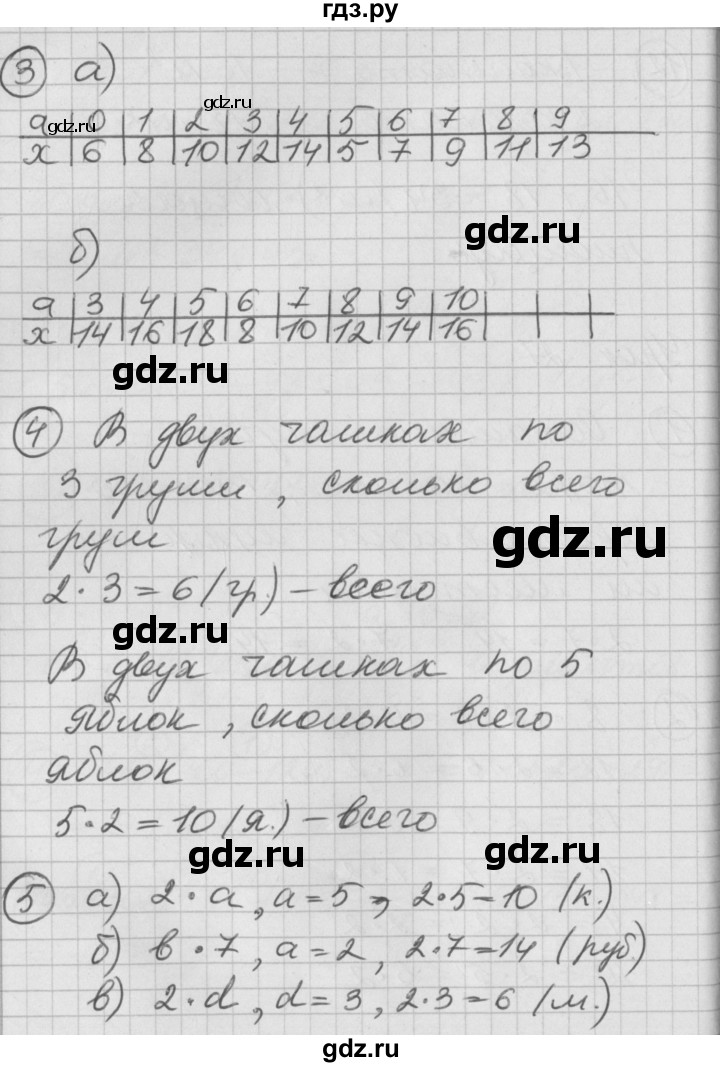 гдз.ру
3 а)
gdz.ru
а 0 1 2 3 4 5 6 7 8 9
gdz.ru
х 6 8 10 12 14 5 7 9 11 13
gdz.ru
б)
а 3 4 5 6 7 8 9 10
х 14 16 18 8 10 12 14 16
gdz.ru
4 В двух чашках по
3 груши, сколько всего
gdz.ru
груш
2·3=6 (гр.) – всего
gdz.ru
В двух чашках по 5
яблок, сколько всего
яблок
5·2=10 (я.) – всего
gdz.ru gdz.ru
5 а) 2·а, а=5, 2·5=10 (к.)
б) в·7, а=2, 2·7=14 (руб.)
в) 2·d, d=3, 2·3=6 (м.)
gdz.ru